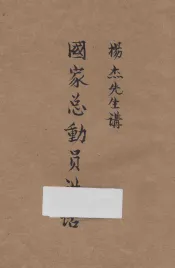 楊杰先生講
國家总動員